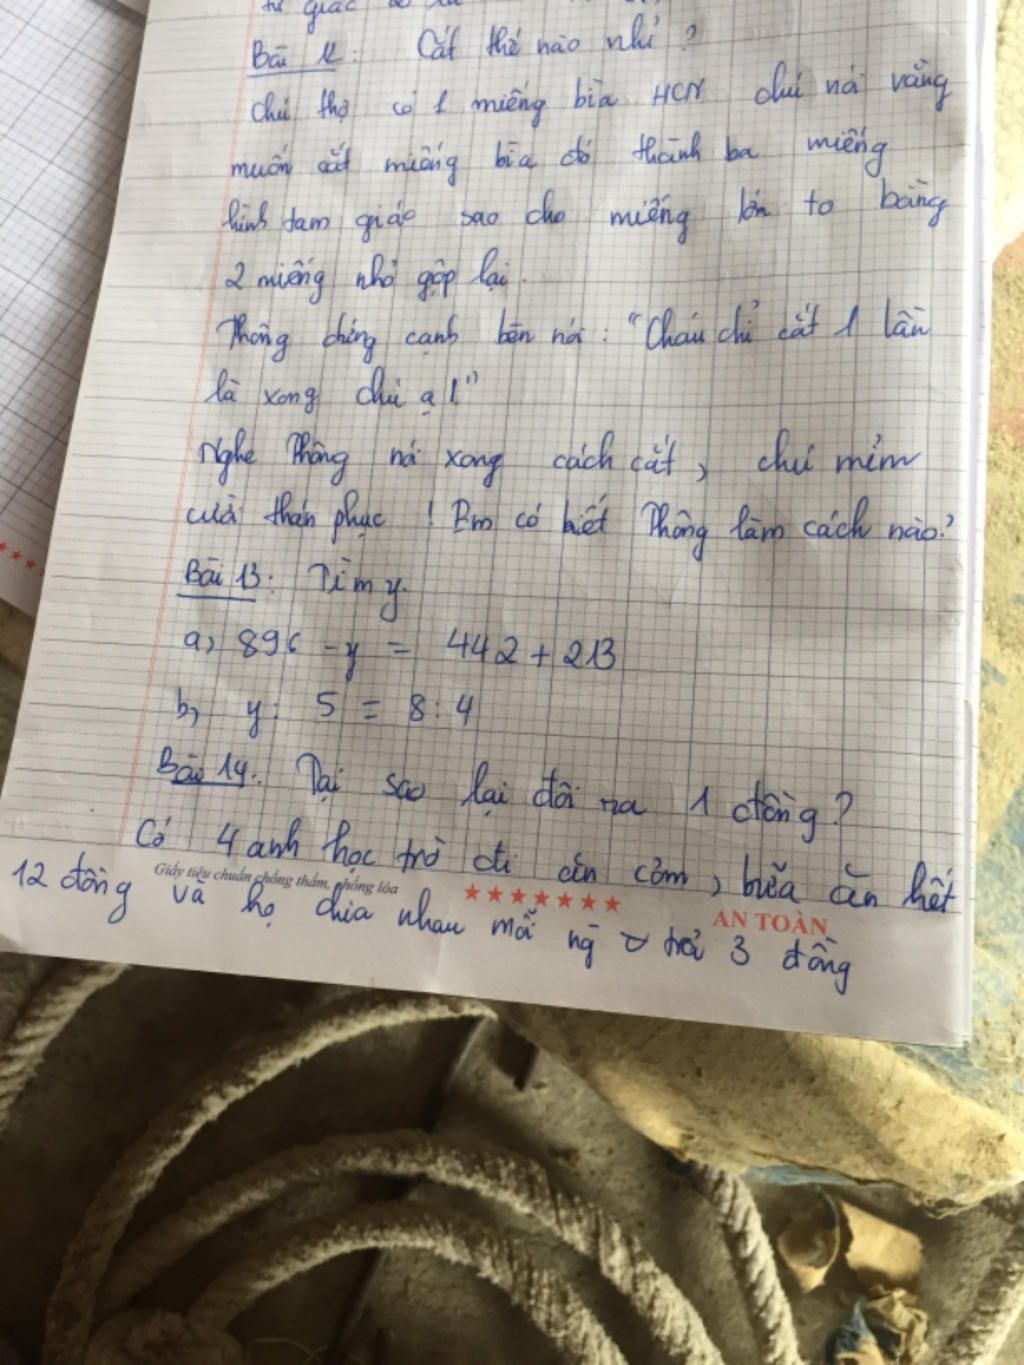 tứ giác
Bài 12: Cắt thế nào nhỉ?
Chú thợ có 1 miếng bìa HCN chú nói vằng
muốn cắt miếng bìa đó thành ba miếng
hình tam giác sao cho miếng lớn to bằng
2 miếng nhỏ gộp lại.
Thông đứng cạnh bên nói: "Cháu chỉ cắt 1 lần
là xong chú ạ!"
Nghe Thông nói xong cách cắt, chú mỉm
cười thán phục! Em có biết Thông làm cách nào?
Bài 13: Tìm y.
a) 896 - y = 442 + 213
b) y : 5 = 8 : 4
Bài 14: Tại sao lại đôi ra 1 đồng?
Có 4 anh học trò đi ăn cơm, bữa ăn hết
Giấy tiêu chuẩn chống thấm, chống lóa
★★★★★★★ AN TOÀN
12 đồng và họ chia nhau mỗi ng trả 3 đồng